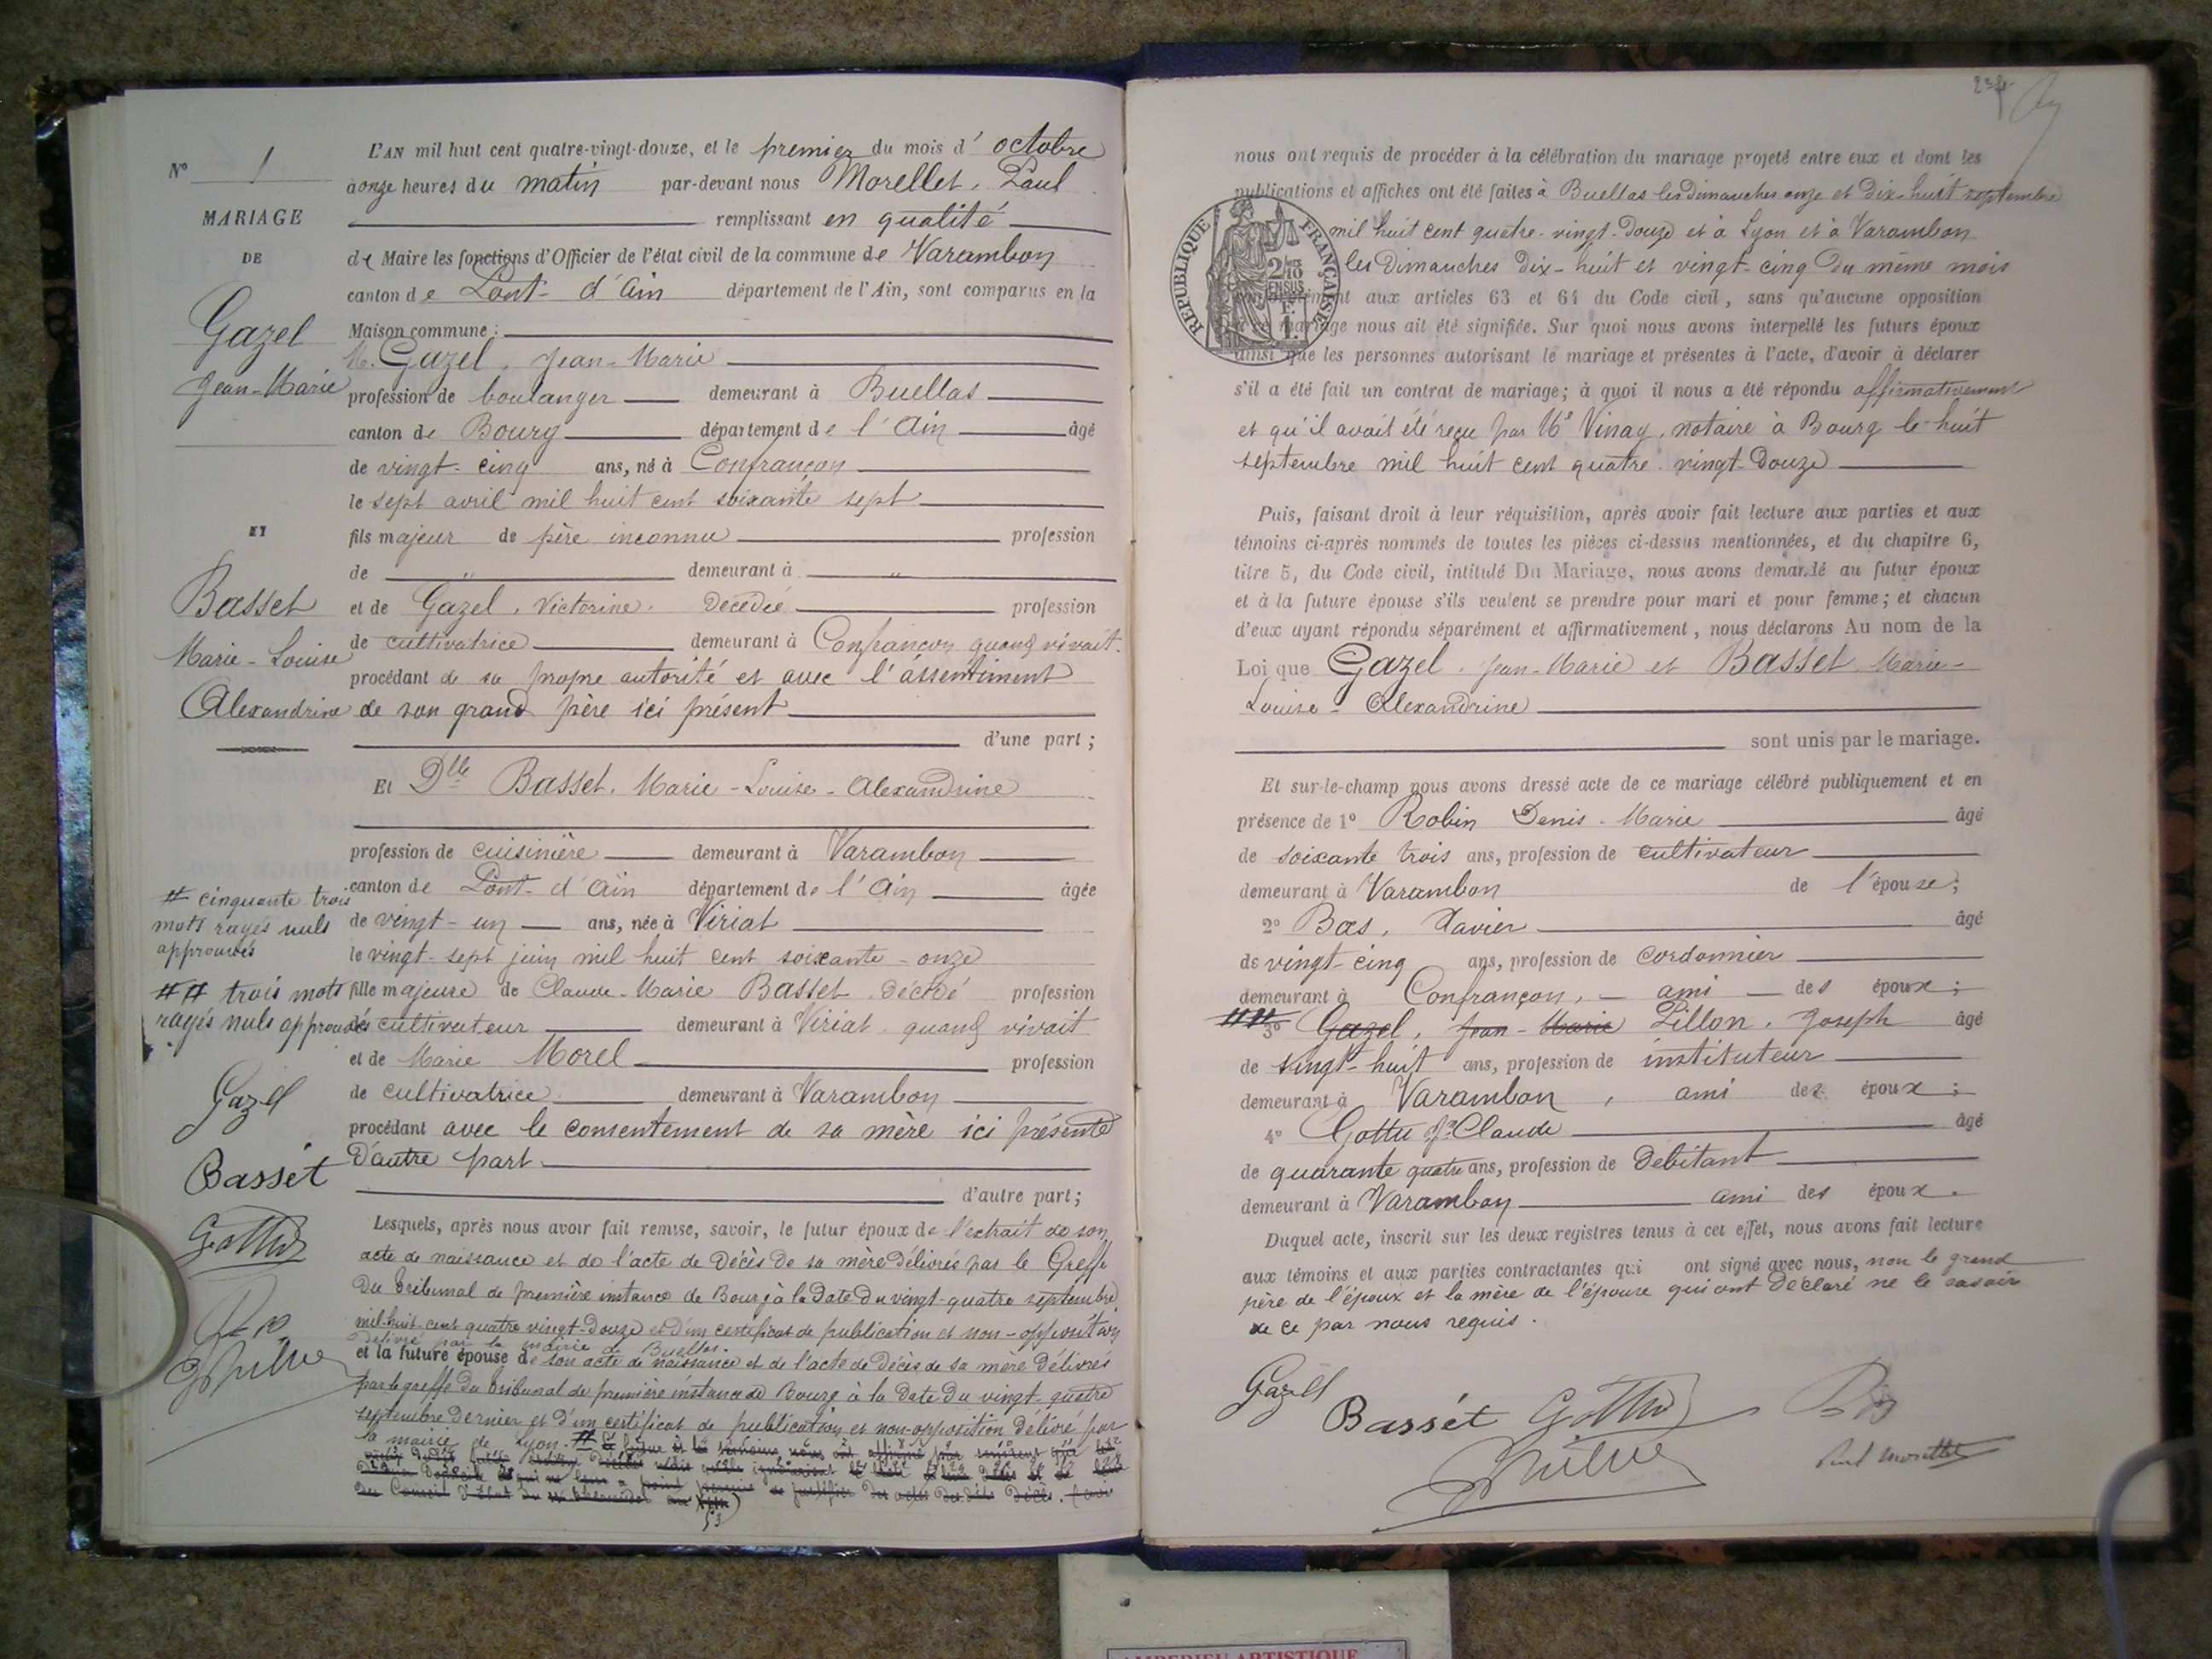 N° 1
MARIAGE
DE
Gazel
Jean-Marie
ET
Basset
Marie-Louise
Alexandrine
# cinquante trois
mots rayés nuls
approuvés
## trois mots
rayés nuls approuvés
Gazel
Basset
L'AN mil huit cent quatre-vingt-douze, et le premier du mois d'octobre
à onze heures du matin par-devant nous Morellet, Paul
remplissant en qualité
de Maire les fonctions d'Officier de l'état civil de la commune de Varambon
canton de Pont-d'Ain département de l'Ain, sont comparus en la
Maison commune :
M. Gazel, Jean-Marie
profession de boulanger demeurant à Buellas
canton de Bourg département de l'Ain âgé
de vingt-cinq ans, né à Confrançon
le sept avril mil huit cent soixante sept
fils majeur de père inconnu profession
de " demeurant à "
et de Gazel, Victorine, décédée profession
de cultivatrice demeurant à Confrançon quand vivait.
procédant de sa propre autorité et avec l'assentiment
de son grand père ici présent
d'une part ;
Et Dlle Basset, Marie-Louise-Alexandrine
profession de cuisinière demeurant à Varambon
canton de Pont-d'Ain département de l'Ain âgée
de vingt-un ans, née à Viriat
le vingt-sept juin mil huit cent soixante-onze
fille majeure de Claude-Marie Basset, décédé profession
de cultivateur demeurant à Viriat quand vivait
et de Marie Morel profession
de cultivatrice demeurant à Varambon
procédant avec le consentement de sa mère ici présente
d'autre part
d'autre part ;
Lesquels, après nous avoir fait remise, savoir, le futur époux de l'extrait de son
acte de naissance et de l'acte de décès de sa mère délivrés par le Greffe
du Tribunal de première instance de Bourg à la date du vingt-quatre septembre
mil-huit-cent quatre vingt-douze et d'un certificat de publication et non-opposition
délivré par la mairie de Buellas.
et la future épouse de son acte de naissance et de l'acte de décès de sa mère délivrés
par le greffe du Tribunal de première instance de Bourg à la date du vingt-quatre
septembre dernier et d'un certificat de publication et non-opposition délivré par
la mairie de Lyon. #
53
nous ont requis de procéder à la célébration du mariage projeté entre eux et dont les
publications et affiches ont été faites à Buellas les dimanches onze et dix-huit septembre
mil huit cent quatre-vingt-douze et à Lyon et à Varambon
les dimanches dix-huit et vingt-cinq du même mois
RÉPUBLIQUE FRANÇAISE
2/10 EN SUS
aux articles 63 et 64 du Code civil, sans qu'aucune opposition
mariage nous ait été signifiée. Sur quoi nous avons interpellé les futurs époux
ainsi que les personnes autorisant le mariage et présentes à l'acte, d'avoir à déclarer
s'il a été fait un contrat de mariage ; à quoi il nous a été répondu affirmativement
et qu'il avait été reçu par Me Vinay, notaire à Bourg le huit
septembre mil huit cent quatre-vingt-douze
Puis, faisant droit à leur réquisition, après avoir fait lecture aux parties et aux
témoins ci-après nommés de toutes les pièces ci-dessus mentionnées, et du chapitre 6,
titre 5, du Code civil, intitulé Du Mariage, nous avons demandé au futur époux
et à la future épouse s'ils veulent se prendre pour mari et pour femme ; et chacun
d'eux ayant répondu séparément et affirmativement, nous déclarons Au nom de la
Loi que Gazel, Jean-Marie et Basset Marie-
Louise-Alexandrine
sont unis par le mariage.
Et sur-le-champ nous avons dressé acte de ce mariage célébré publiquement et en
présence de 1° Robin Denis-Marie âgé
de soixante trois ans, profession de cultivateur
demeurant à Varambon de l'épouse ;
2° Bas, Xavier âgé
de vingt-cinq ans, profession de cordonnier
demeurant à Confrançon, ami des époux ;
## 3° Gazel, Jean-Marie Pillon, Joseph âgé
de vingt-huit ans, profession de instituteur
demeurant à Varambon, ami des époux ;
4° Gottu Claude âgé
de quarante quatre ans, profession de débitant
demeurant à Varambon ami des époux.
Duquel acte, inscrit sur les deux registres tenus à cet effet, nous avons fait lecture
aux témoins et aux parties contractantes qui ont signé avec nous, non le grand
père de l'époux et la mère de l'épouse qui ont déclaré ne le savoir
de ce par nous requis.
Gazel
Basset
Paul Morellet